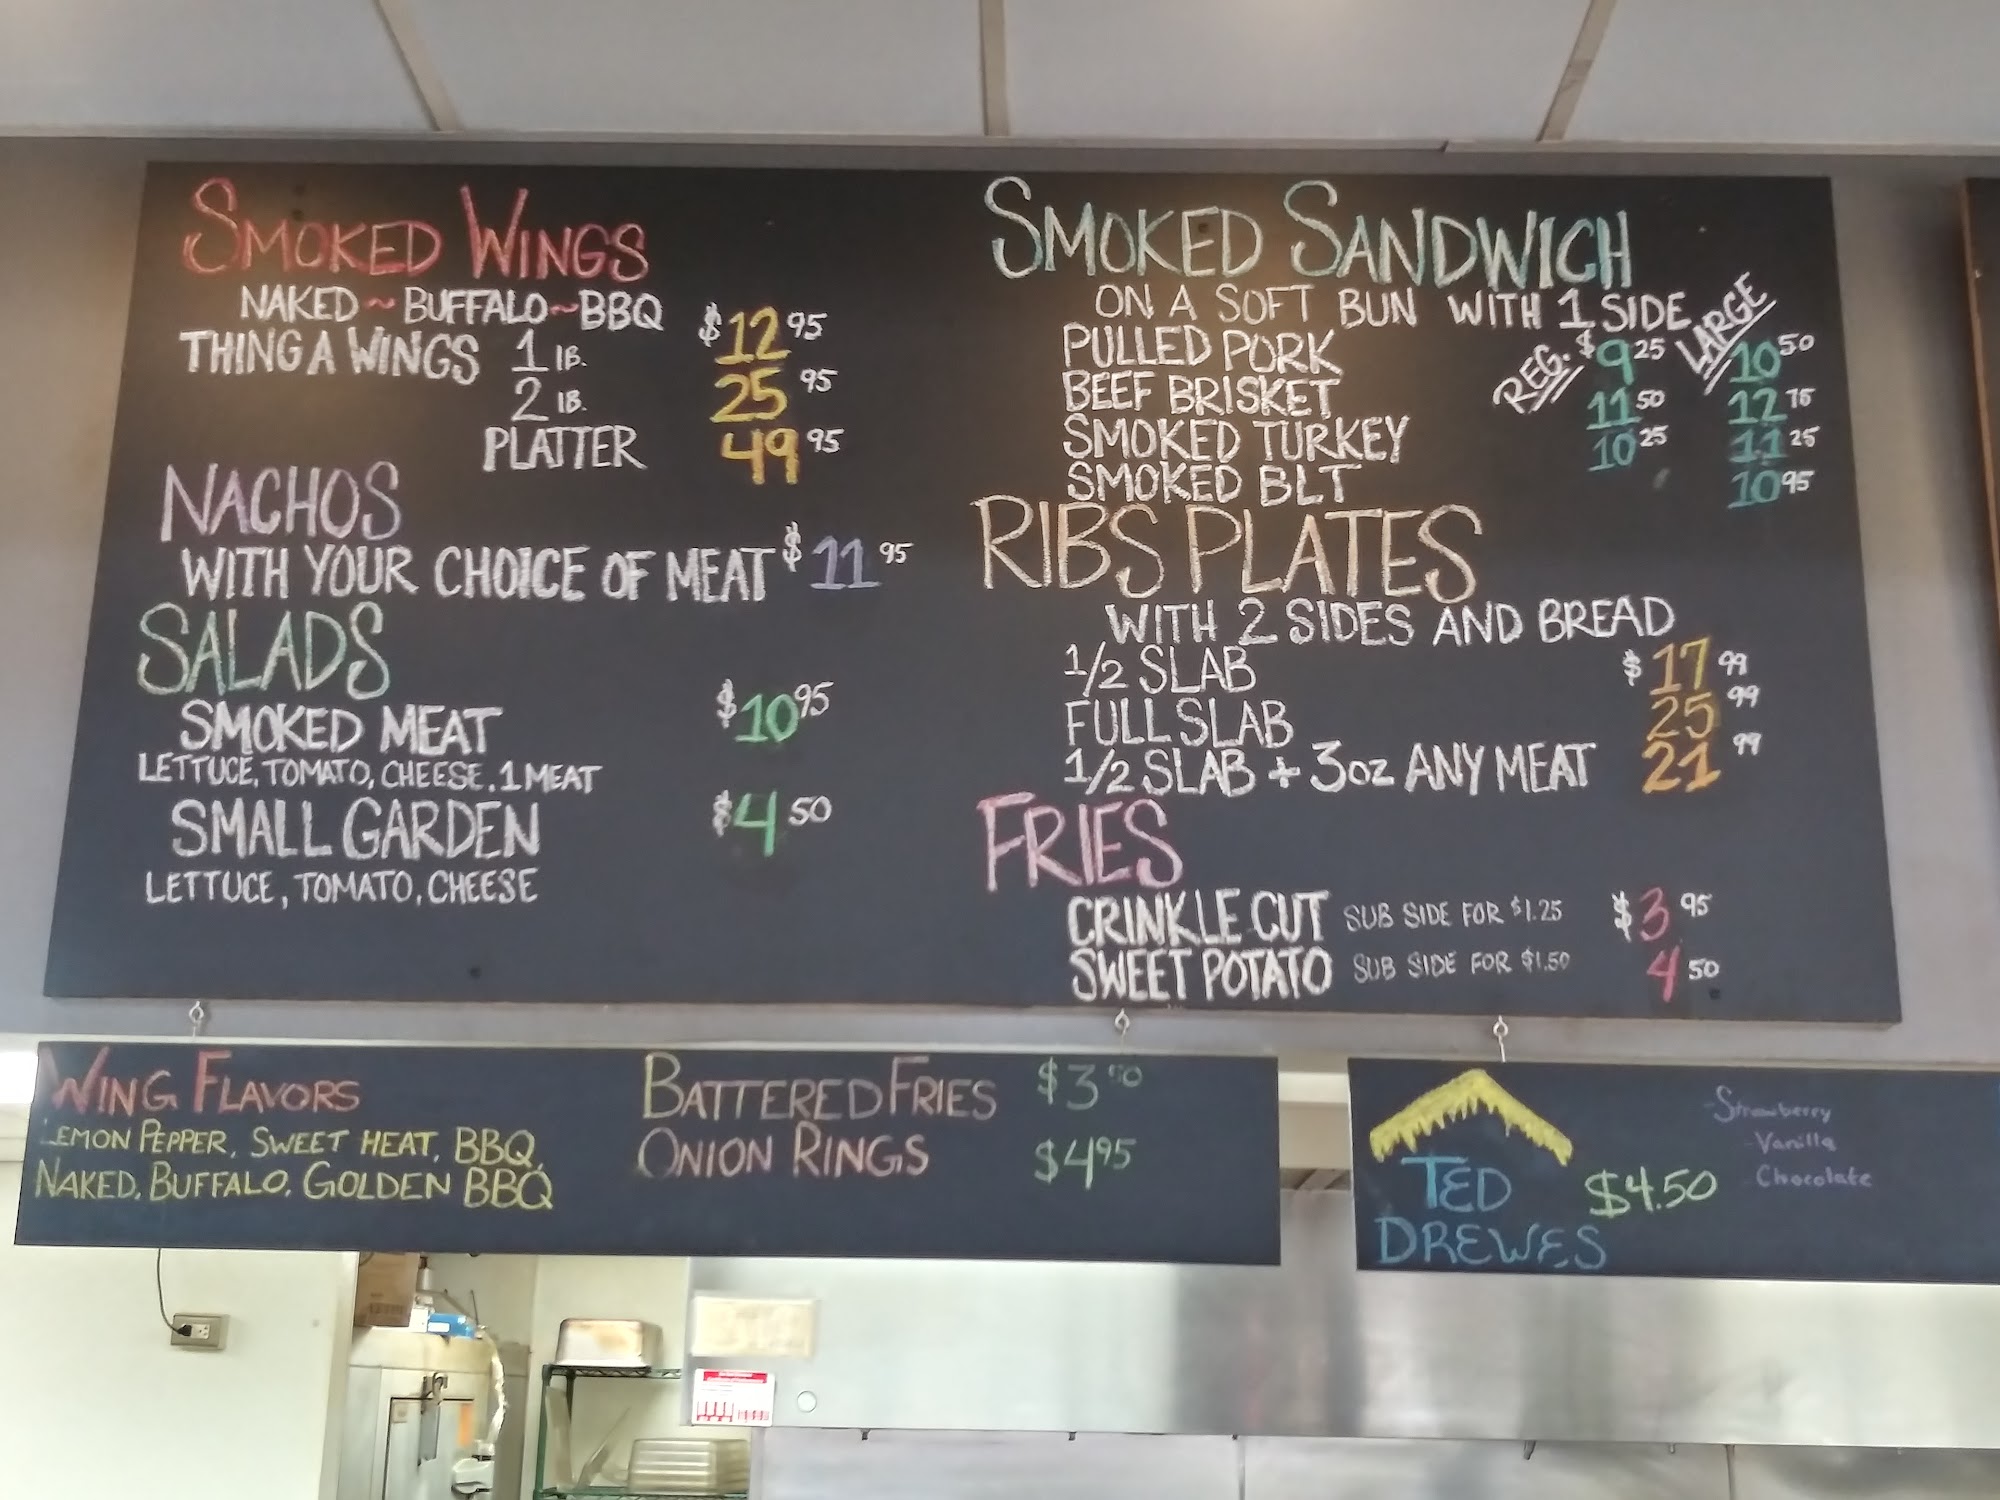 SMOKED WINGS
NAKED ~ BUFFALO ~ BBQ
THING A WINGS 1 LB. $12 95
2 LB. 25 95
PLATTER 49 95
NACHOS
WITH YOUR CHOICE OF MEAT $11 95
SALADS
SMOKED MEAT $10 95
LETTUCE, TOMATO, CHEESE. 1 MEAT
SMALL GARDEN $4 50
LETTUCE, TOMATO, CHEESE
SMOKED SANDWICH
ON A SOFT BUN WITH 1 SIDE
REG. LARGE
PULLED PORK $9 25 10 50
BEEF BRISKET 11 50 12 75
SMOKED TURKEY 10 25 11 25
SMOKED BLT 10 95
RIBS PLATES
WITH 2 SIDES AND BREAD
1/2 SLAB $17 99
FULL SLAB 25 99
1/2 SLAB + 3oz ANY MEAT 21 99
FRIES
CRINKLE CUT SUB SIDE FOR $1.25 $3 95
SWEET POTATO SUB SIDE FOR $1.50 4 50
WING FLAVORS
LEMON PEPPER, SWEET HEAT, BBQ,
NAKED, BUFFALO, GOLDEN BBQ
BATTERED FRIES $3 50
ONION RINGS $4 95
TED
DREWES
$4.50
-Strawberry
-Vanilla
-Chocolate